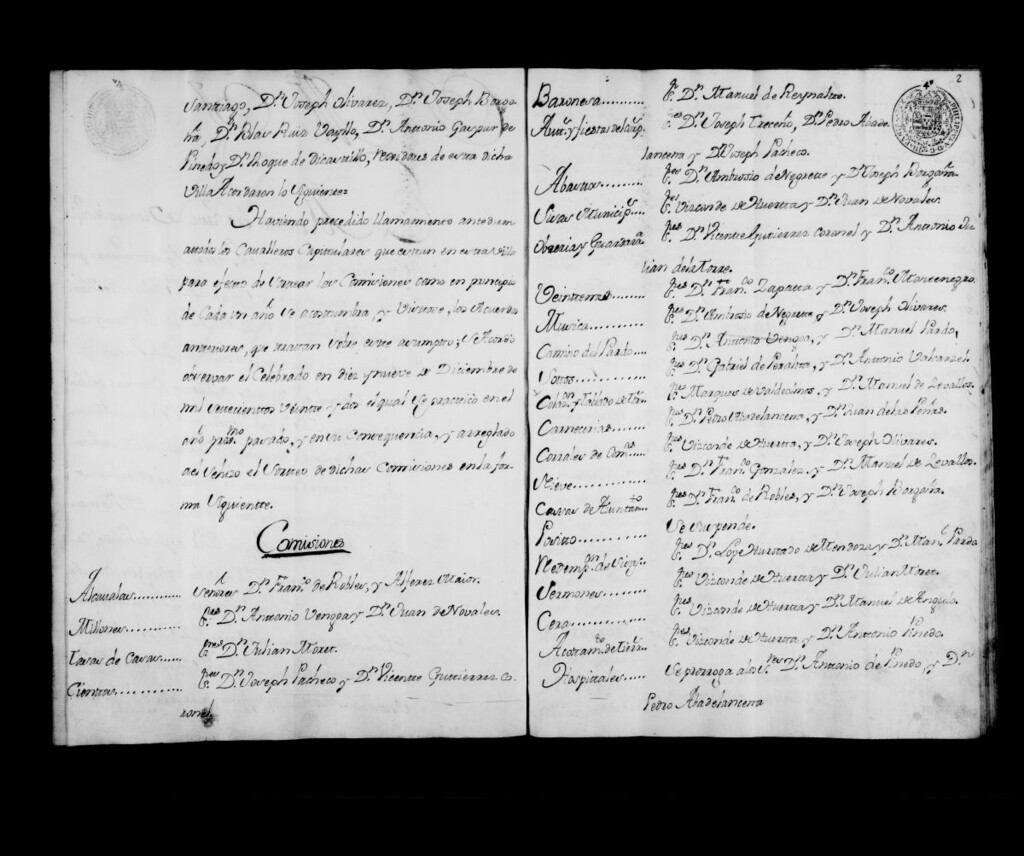 Santiago, D.n Joseph Olivarez, D.n Joseph Borga
ña, D.n Blas Ruiz Vayllo, D.n Antonio Gaspar de
Pinedo, D.n Roque de Vicastillo, Rexidores de esta dicha
Villa Acordaron lo siguiente
Haviendo precedido llamamento antediem
a todos los Cavalleros Capitulares que estan en esta Villa
para efecto de tratar las Comisiones como en principio
de Cada un año se acostumbra, y vistose, los Acuerdos
anteriores, que trattan sobre este asumpto; se Acordó
observar el Celebrado en diez y nueve de Diciembre de
mil settecientos veinte y dos el qual se practicó en el
año pro.mo pasado, y en su Consequencia, y arreglado
a el se hizo el Sorteo de dichas Comisiones en la for
ma siguiente.
Comisiones
Alcavalas........... Señores D.n Fran.co de Robles, y Alferez Maior.
Millones............ S.res D.n Antonio Vengoa y D.n Juan de Novales.
Casas de Casas..... S.res D.n Julian Moret.
Cientos............ S.res D.n Joseph Pacheco y D.n Vicente Gutierrez Co
ronel
2
Baronesa.......... S.r D.n Manuel de Reynalte.
Aut.s y fiestas del Corp. S.res D.n Joseph Treceño, D.n Pedro Abade
lancerra y D.n Joseph Pacheco.
Abastos......... S.res D.n Ambrosio de Negrete y D.n Joseph Borgaña.
Sisas Municip.s S.res Vizconde de Huertta y D.n Juan de Novales.
Obreria y S.res D.n Vicente Gutierrez Coronel y D.n Antonio Ju
lian de la Torre.
Veintenas........ S.res D.n Fran.co Zapatta y D.n Fran.co Montenegro.
Musica.......... S.res D.n Ambrosio de Negrete, y D.n Joseph Olivares.
Camino del Pardo.... S.res D.n Antonio Vengoa, y D.n Manuel Pardo.
Sottos............. S.res D.n Gabriel de Peraltta, y D.n Antonio Valcarzel.
S.res Marques de Valdeolmos, y D.n Manuel de Zevallos.
Carnecerias........ S.res D.n Pedro Abadelancerra, y D.n Juan de las Peñas.
Corrales de Com.s S.res Vizconde de Huertta, y D.n Joseph Olivares.
Nieve.......... S.res D.n Fran.co Gonzalez, y D.n Manuel de Zevallos.
Casas de Aiuntam.to S.res D.n Fran.co de Robles, y D.n Joseph Borgaña.
Posito........ Se suspende.
S.res D.n Lope Hurtado de Mendoza y D.n Man.l Pardo
Sermones....... S.res Vizconde de Huertta y D.n Julian Moret.
Cera........... S.res Vizconde de Huertta y D.n Manuel de Angulo.
S.res Vizconde de Huertta, y D.n Antonio Pinedo.
Hospitales..... Se prorroga a los S.res D.n Antonio de Pinedo, y D.n
Pedro Abadelancerra